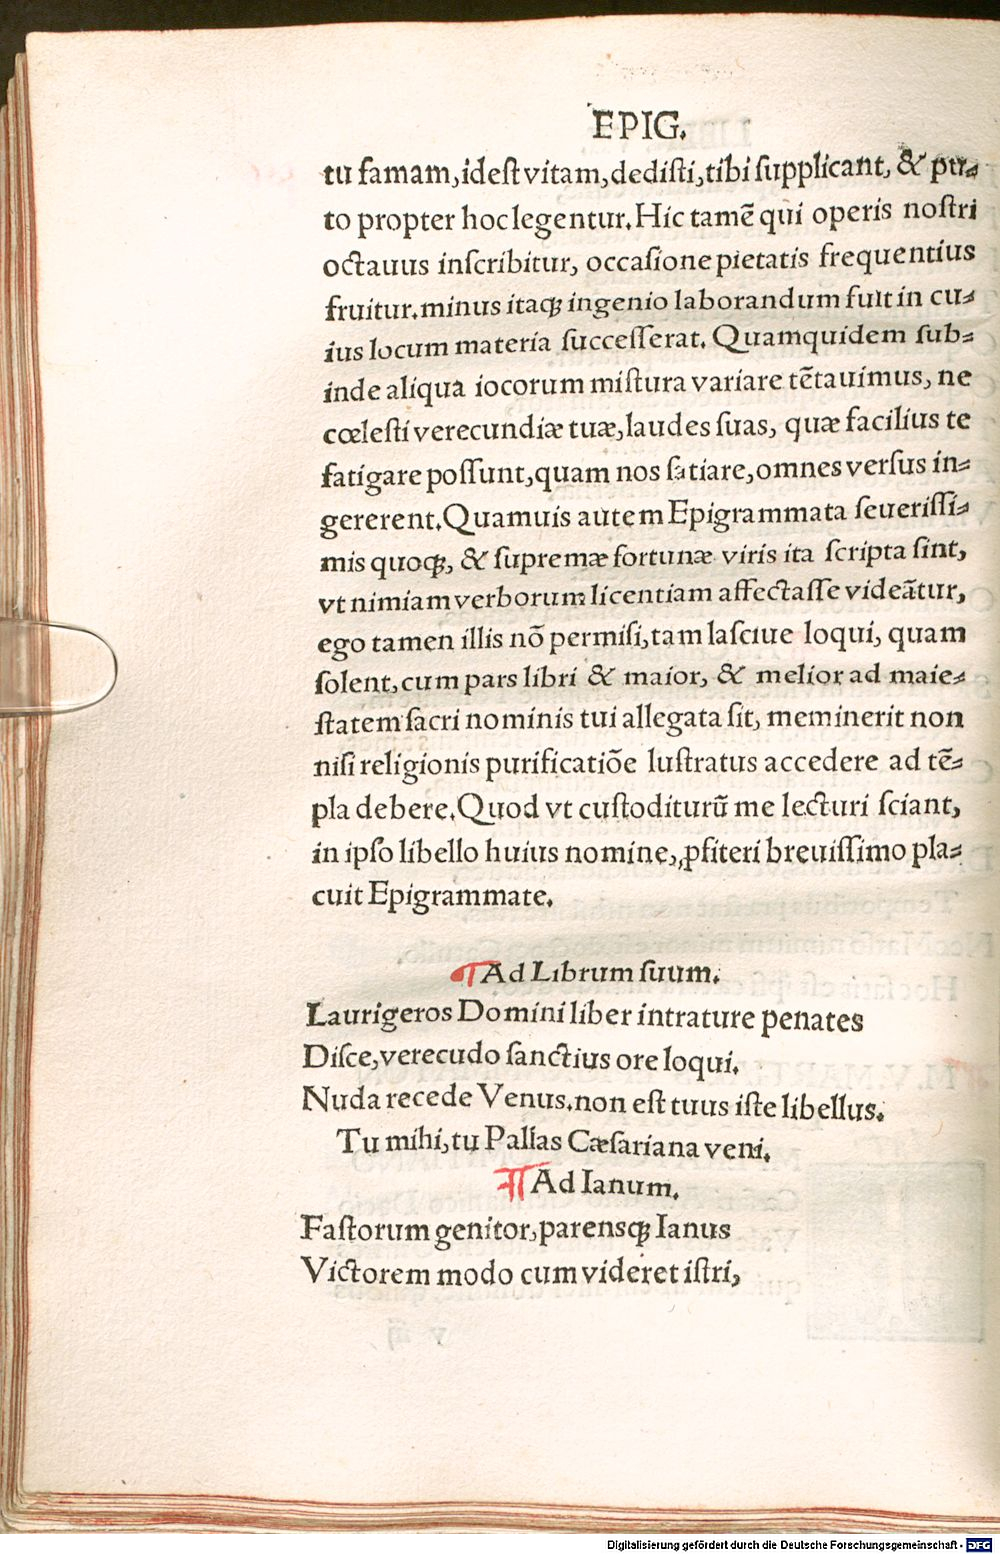 EPIG.
tu famam,ideſt vitam,dediſti,tibi ſupplicant, & pu⸗
to propter hoc legentur. Hic tamē qui operis noſtri
octauus inſcribitur, occaſione pietatis frequentius
fruitur.minus itaqꝫ ingenio laborandum fuit in cu⸗
ius locum materia ſucceſſerat. Quamquidem ſub⸗
inde aliqua iocorum miſtura variare tētauimus, ne
cœleſti verecundiæ tuæ,laudes ſuas, quæ facilius te
fatigare poſſunt,quam nos ſatiare,omnes verſus in⸗
gererent.Quamuis autem Epigrammata ſeueriſſi⸗
mis quoqꝫ, & ſupremæ fortunæ viris ita ſcripta ſint,
vt nimiam verborum licentiam affectaſſe videātur,
ego tamen illis nō permiſi,tam laſciue loqui, quam
ſolent,cum pars libri & maior, & melior ad maie⸗
ſtatem ſacri nominis tui allegata ſit, meminerit non
niſi religionis purificatiōe luſtratus accedere ad tē⸗
pla debere.Quod vt cuſtoditurū me lecturi ſciant,
in ipſo libello huius nomine,ꝓfiteri breuiſſimo pla⸗
cuit Epigrammate.
¶Ad Librum ſuum.
Laurigeros Domini liber intrature penates
Diſce,verecudo ſanctius ore loqui.
Nuda recede Venus.non eſt tuus iſte libellus.
Tu mihi,tu Pallas Cæſariana veni.
¶Ad Ianum.
Faſtorum genitor,parensqꝫ Ianus
Victorem modo cum videret iſtri,
Digitalisierung gefördert durch die Deutsche Forschungsgemeinschaft - DFG